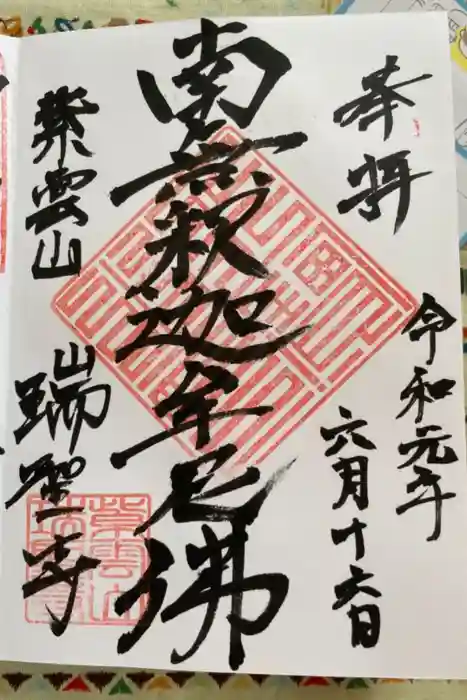 奉拝
令和元年
六月十六日
南無釈迦牟尼佛
紫雲山
瑞聖寺
紫雲山